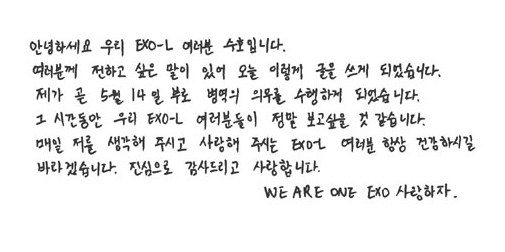 안녕하세요 우리 EXO-L 여러분 수호입니다.
여러분께 전하고 싶은 말이 있어 오늘 이렇게 글을 쓰게 되었습니다.
제가 곧 5월 14일 부로 병역의 의무를 수행하게 되었습니다.
그 시간동안 우리 EXO-L 여러분들이 정말 보고싶을 것 같습니다.
매일 저를 생각해 주시고 사랑해 주시는 EXO-L 여러분 항상 건강하시길
바라겠습니다. 진심으로 감사드리고 사랑합니다.
WE ARE ONE EXO 사랑하자.